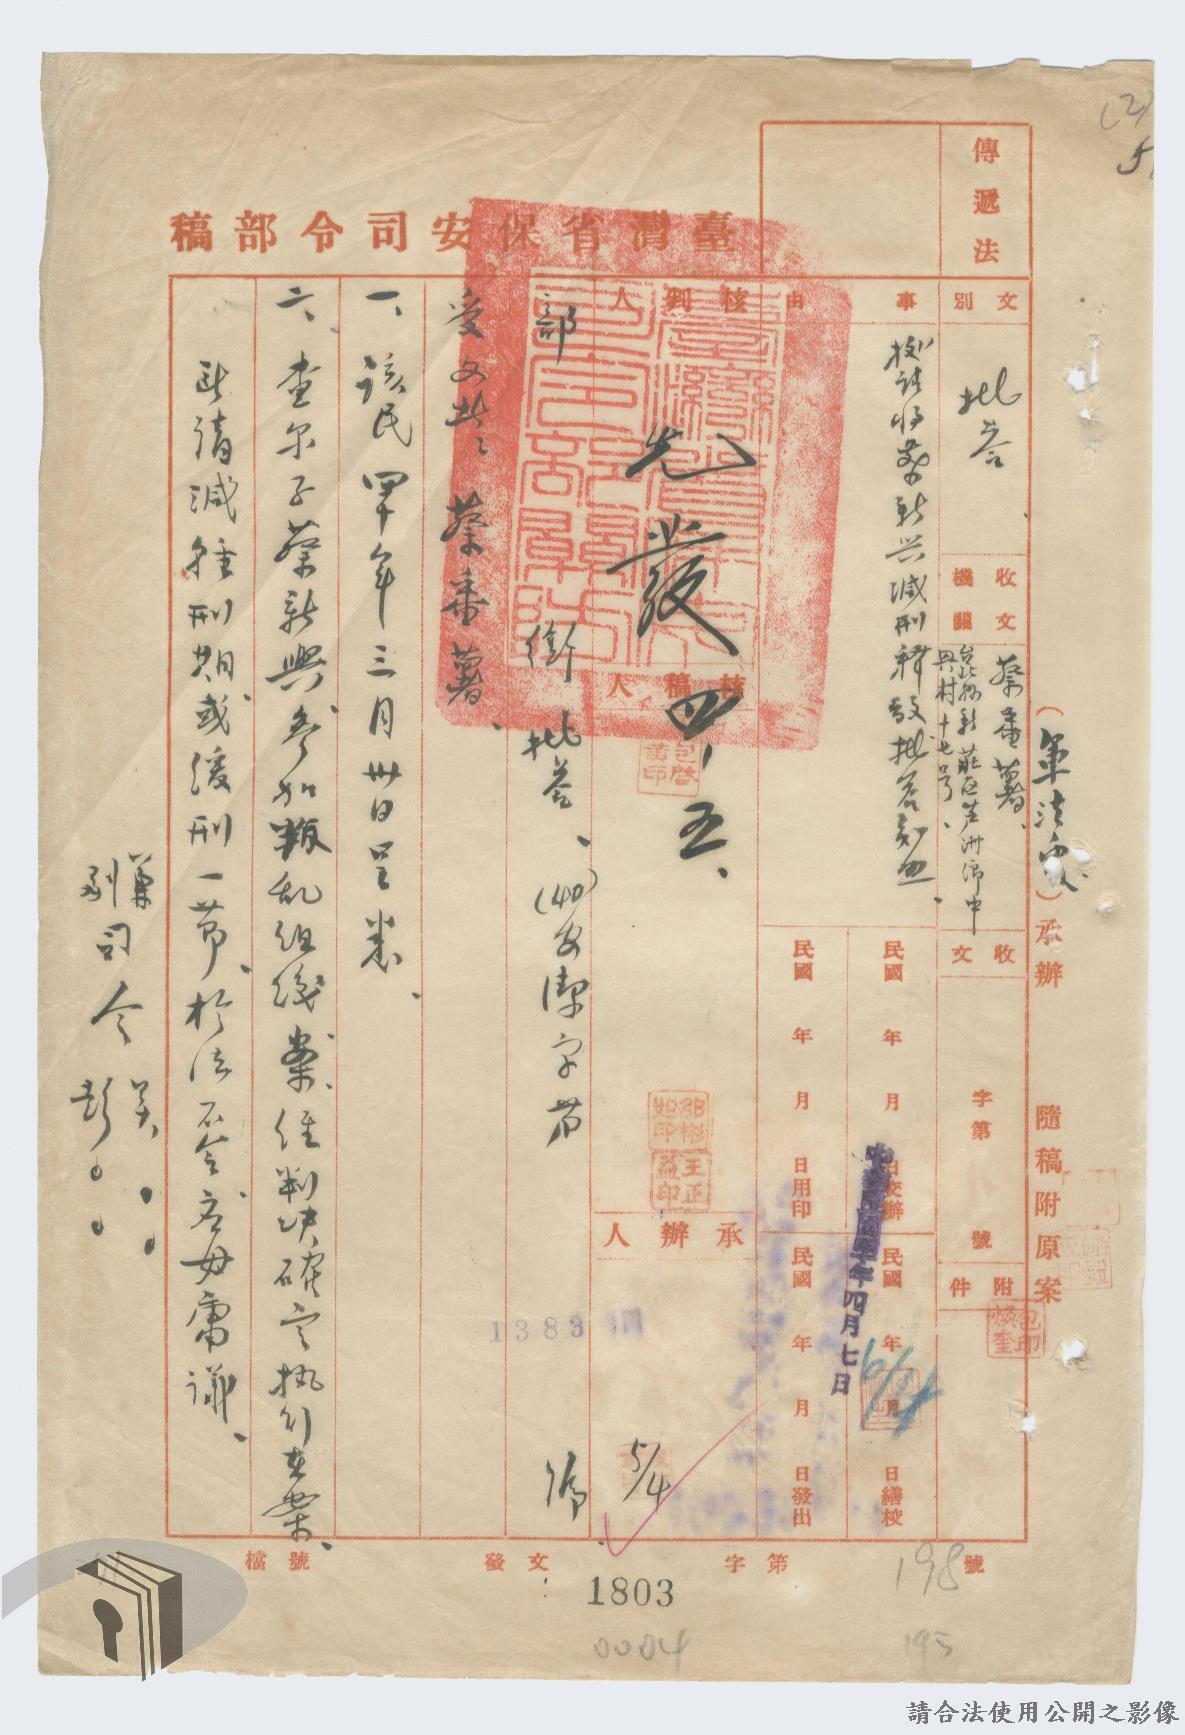 臺灣省保安司令部稿
傳遞法
(軍法處)承辦 隨稿附原案
文別
批答
收文機關
蔡番薯
台北縣新莊區芦洲鄉中
興村十七号
收文
字第
號
附件
事由
據請將蔡新兴減刑釋放批答知照
民國 年 月 日交辦
民國 年 月 日繕校
民國 年 月 日用印
民國 年 月 日發出
中華民國四十年四月七日
核判人
先發 四、五、
核稿人
承辦人
5/4
部銜 批答、(40)安潔字第 號
13830
受文者:蔡番薯
一、該民四十年三月卅日呈悉、
二、查尔子蔡新興參加叛乱組織案、經判決確定執行在案、
所請減輕刑期或緩刑一節、於法不合、应毋庸議、
兼司令 吳
副司令 彭
檔號
發文
字第
號
1803
0004
198
195
請合法使用公開之影像